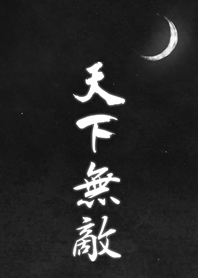 天下無敵